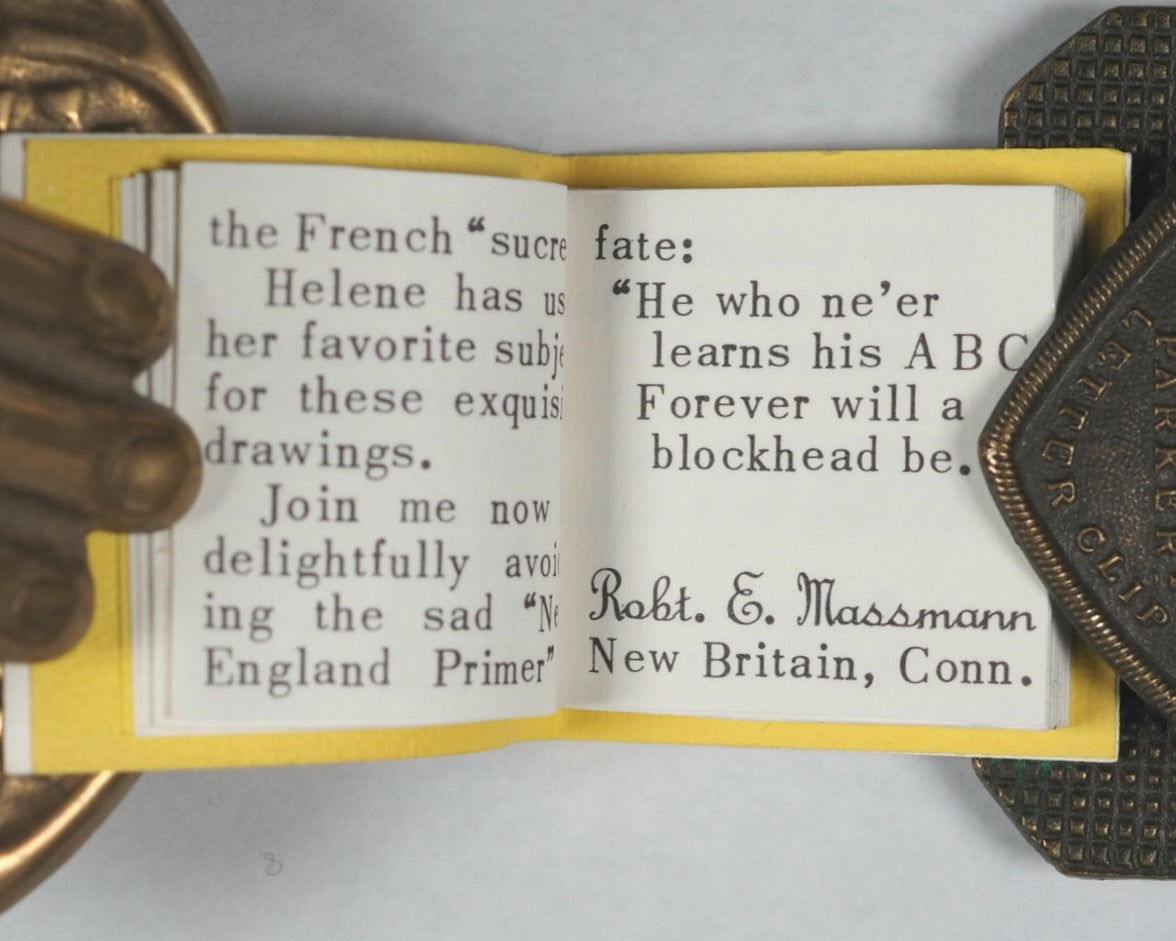 the French “sucre
Helene has us
her favorite subje
for these exquisi
drawings.
Join me now
delightfully avoi
ing the sad “Ne
England Primer”
fate:
“He who ne’er
learns his A B C
Forever will a
blockhead be.
Robt. E. Massmann
New Britain, Conn.
PARKER
LETTER CLIP